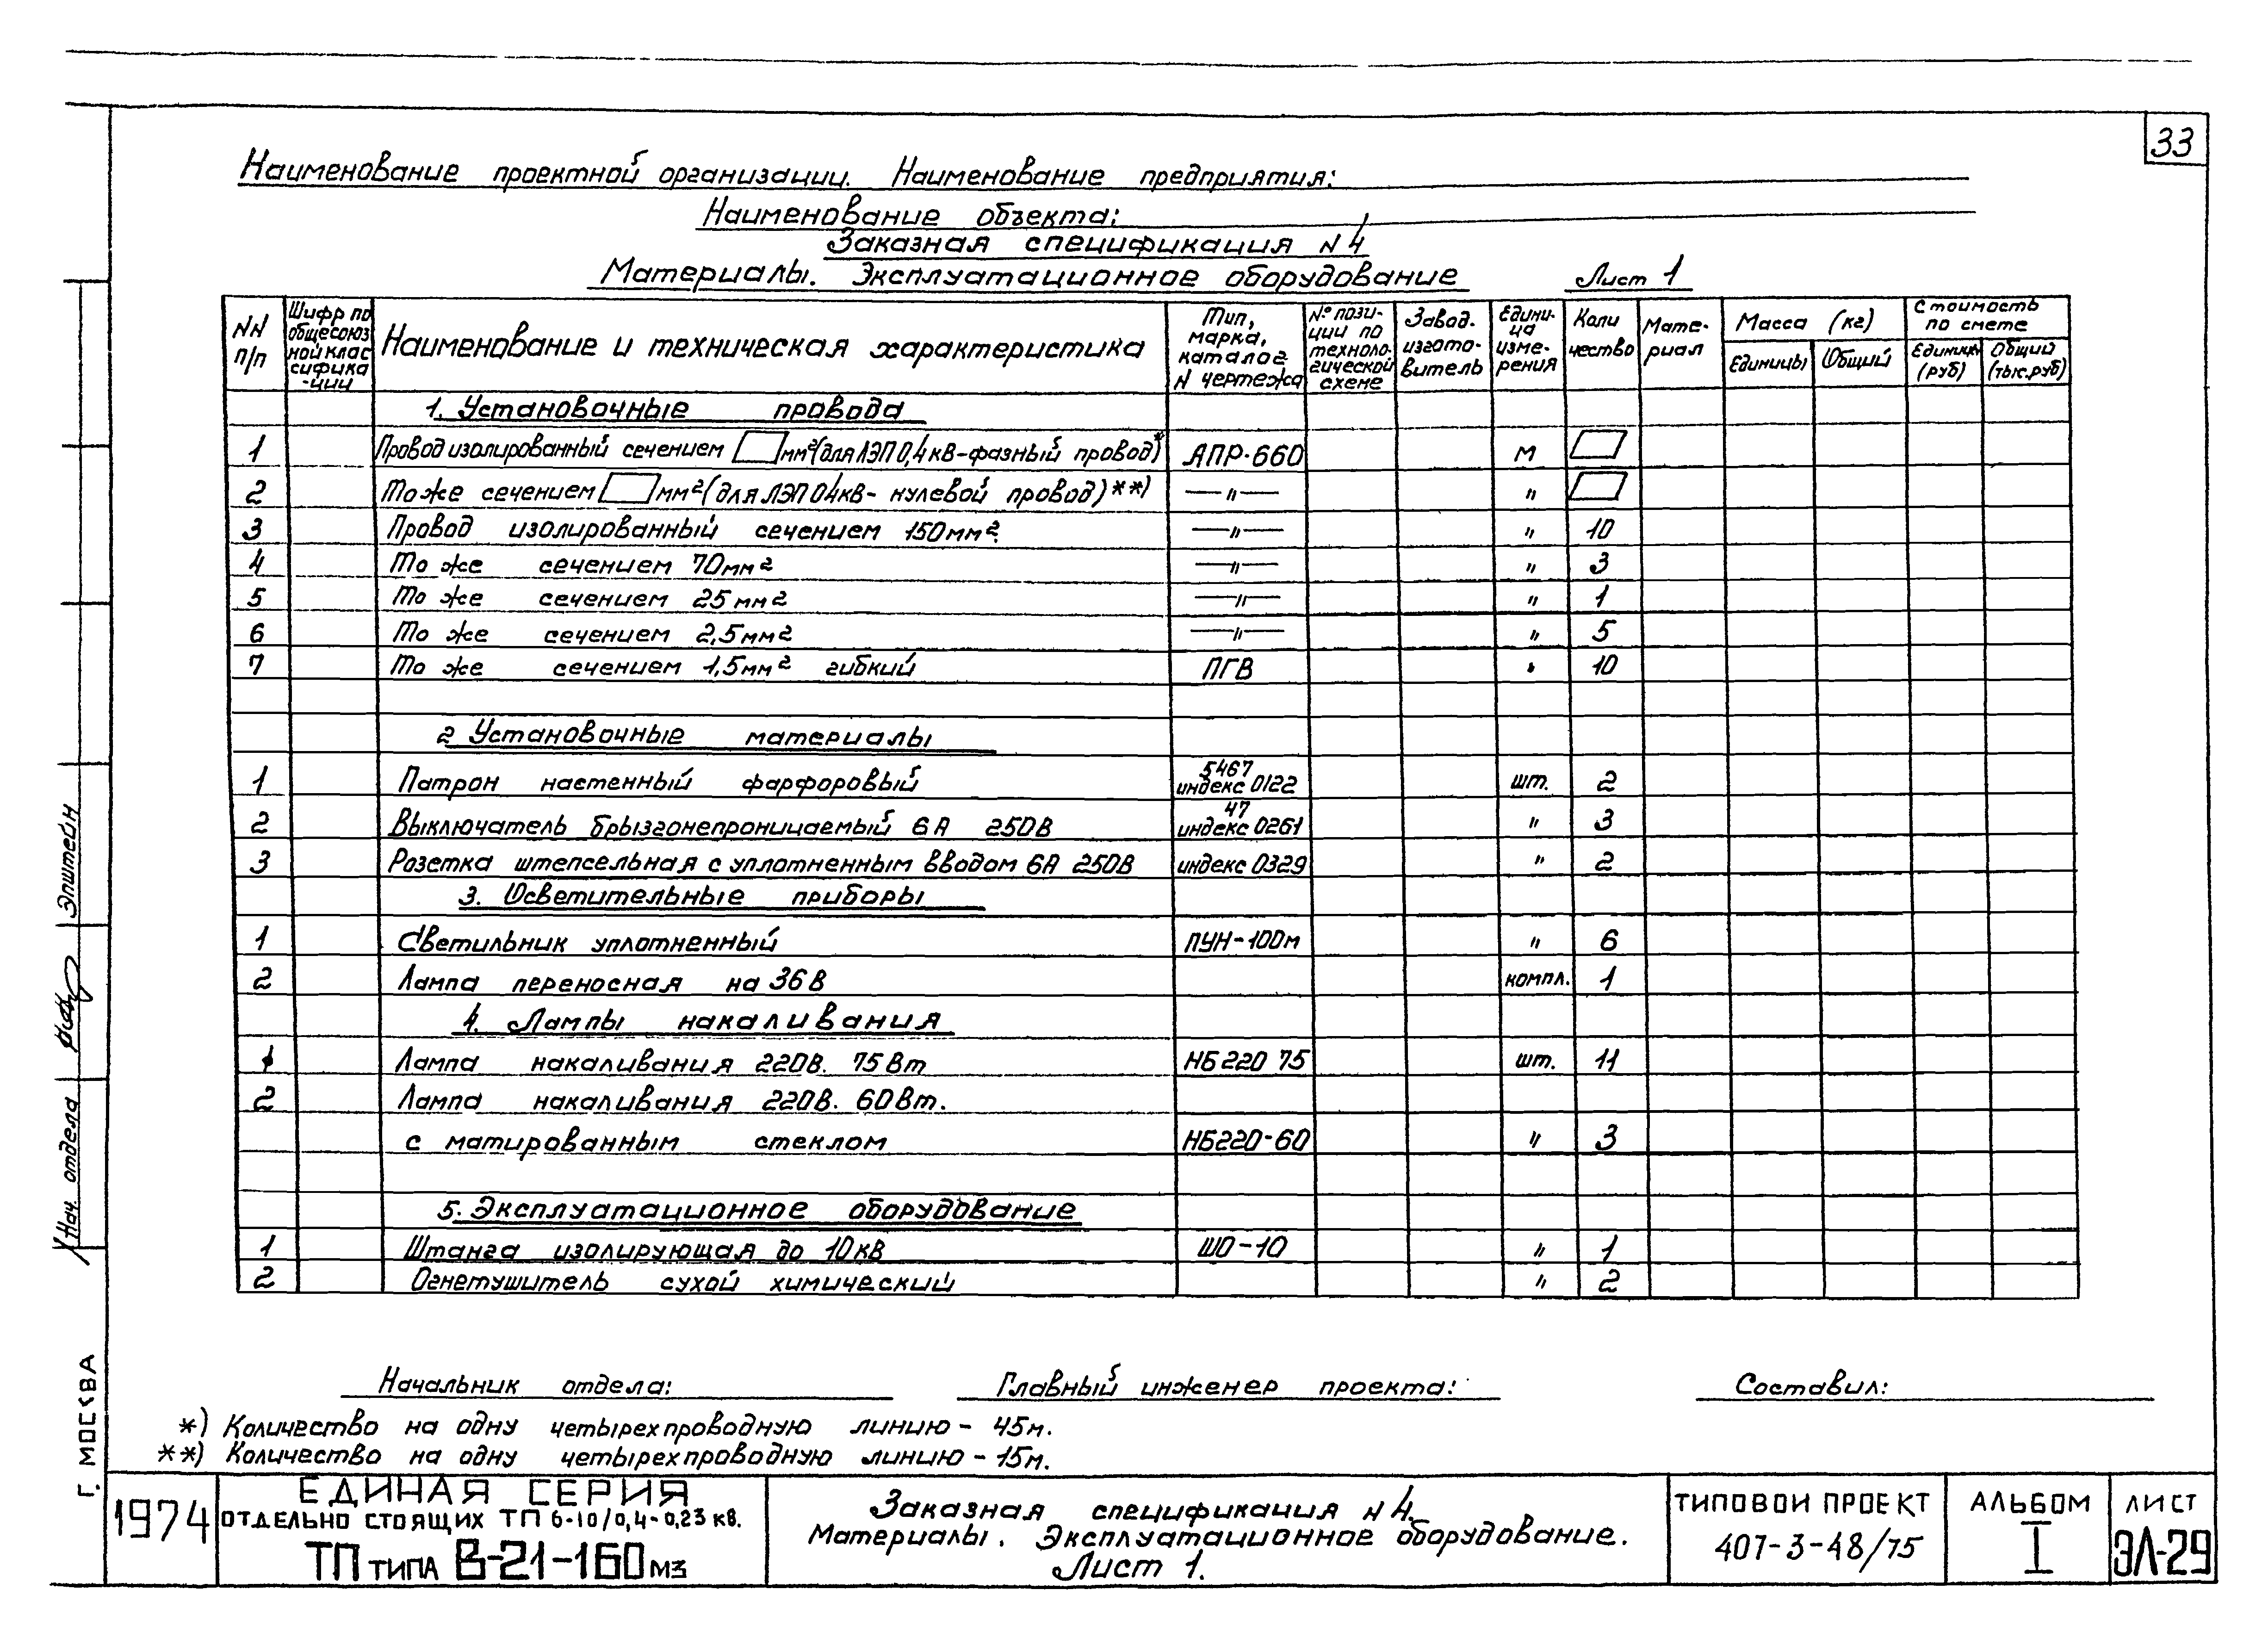 33
Наименование проектной организации. Наименование предприятия:
Наименование объекта:
Заказная спецификация N 4
Материалы. Эксплуатационное оборудование Лист 1
NN п/п
Шифр по общесоюзной классификации
Наименование и техническая характеристика
Тип, марка, каталог N чертежа
№ позиции по технологической схеме
Завод. изготовитель
Единица измерения
Количество
Материал
Масса (кг)
Единицы
Общий
Стоимость по смете
Единицы (руб)
Общий (тыс.руб)
1. Установочные провода
1 Провод изолированный сечением мм² (для ЛЭП 0,4кв-фазный провод)* АПР-660 м
2 То же сечением мм² (для ЛЭП 04кв- нулевой провод)**) —"— "
3 Провод изолированный сечением 150мм² —"— " 10
4 То же сечением 70мм² —"— " 3
5 То же сечением 25мм² —"— " 1
6 То же сечением 2,5мм² —"— " 5
7 То же сечением 1,5мм² гибкий ПГВ " 10
2 Установочные материалы
1 Патрон настенный фарфоровый 5467 индекс 0122 шт. 2
2 Выключатель брызгонепроницаемый 6А 250В 47 индекс 0261 " 3
3 Розетка штепсельная с уплотненным вводом 6А 250В индекс 0329 " 2
3. Осветительные приборы
1 Светильник уплотненный ПУН-100м " 6
2 Лампа переносная на 36В компл. 1
4. Лампы накаливания
1 Лампа накаливания 220В. 75Вт НБ220 75 шт. 11
2 Лампа накаливания 220В. 60Вт.
с матированным стеклом НБ220-60 " 3
5. Эксплуатационное оборудование
1 Штанга изолирующая до 10кв ШО-10 " 1
2 Огнетушитель сухой химический " 2
Начальник отдела: Главный инженер проекта: Составил:
*) Количество на одну четырехпроводную линию - 45м.
**) Количество на одну четырехпроводную линию - 15м.
Нач. отдела Эпштейн
г. МОСКВА
1974
ЕДИНАЯ СЕРИЯ
ОТДЕЛЬНО СТОЯЩИХ ТП 6-10/0,4-0,23 кв.
ТП ТИПА В-21-160м3
Заказная спецификация N 4.
Материалы. Эксплуатационное оборудование.
Лист 1.
ТИПОВОЙ ПРОЕКТ
407-3-48/75
АЛЬБОМ
I
ЛИСТ
ЭЛ-29